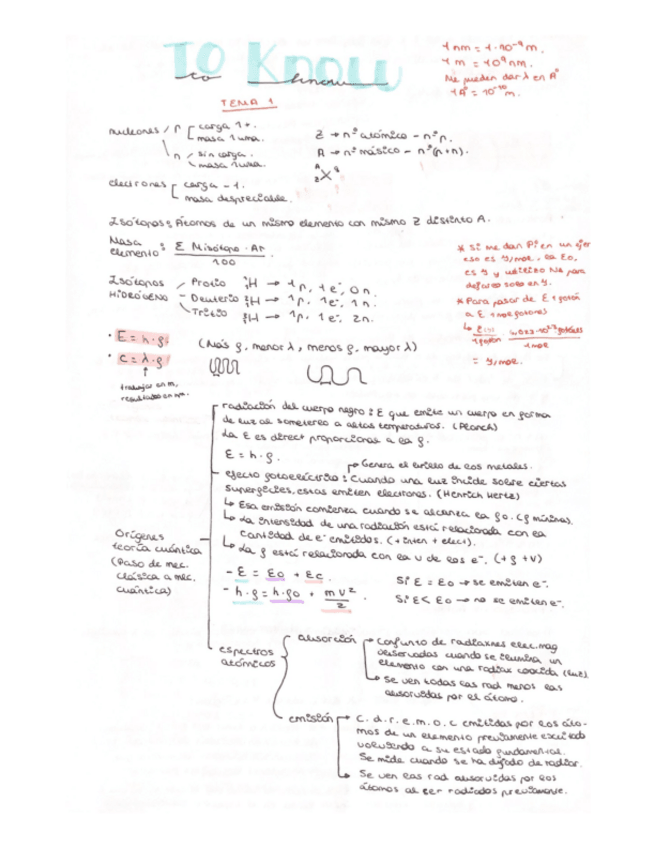 TO KNOW
to know
1 nm = 1·10⁻⁹ m.
1 m = 10⁹ nm.
Me pueden dar λ en A°
1A° = 10⁻¹⁰ m.
TEMA 1
nucleones / p [ carga 1+.
masa 1 uma.
\ n / sin carga.
\ masa 1 uma.
Z → nº atómico - nº p.
A → nº másico - nº (p+n).
A
Z X
electrones [ carga -1.
masa despreciable.
Isótopos: Átomos de un mismo elemento con mismo Z distinto A.
Masa elemento: Σ Misótopo · Ar
100
Isótopos HIDRÓGENO
Protio H → 1p, 1e⁻, 0n.
Deuterio H → 1p, 1e⁻, 1n.
Tritio H → 1p, 1e⁻, 2n.
* Si me dan Pi en un ejer
eso es J/mol, la Eo,
es J y utilizo Na para
dejarlo solo en J.
* Para pasar de E 1 fotón
a E 1 mol fotones
1 fotón
1 mol
= J/mol.
· E = h · f
· C = λ · f
(Más f, menor λ, menos f, mayor λ)
trabajar en m,
Orígenes
teoría cuántica
(Paso de mec.
clásica a mec.
cuántica)
radiación del cuerpo negro: E que emite un cuerpo en forma
de luz al someterlo a altas temperaturas. (Planck)
La E es direct proporcional a la f.
E = h · f.
→ Genera el brillo de los metales.
efecto fotoeléctrico: Cuando una luz incide sobre ciertas
superficies, estas emiten electrones. (Henrich Hertz)
↳ Esa emisión comienza cuando se alcanza la fo. (f mínima).
↳ La intensidad de una radiación está relacionada con la
cantidad de e⁻ emitidos. (+ inten + elect).
↳ La f está relacionada con la v de los e⁻. (+f +v)
- E = Eo + Ec.
- h·f = h·fo + mv²
2
Si E = Eo → se emiten e⁻.
Si E < Eo → no se emiten e⁻.
espectros
atómicos
absorción → Conjunto de radiaxnes elec.mag
observadas cuando se ilumina un
elemento con una radiax conocida (luz)
→ Se ven todas las rad menos las
absorvidas por el átomo.
emisión → C. d. r. e. m. o. c emitidas por los áto-
mos de un elemento previamente excitado
volviendo a su estado fundamental.
Se mide cuando se ha dejado de radiar.
→ Se ven las rad absorvidas por los
átomos al ser radiados previamente.